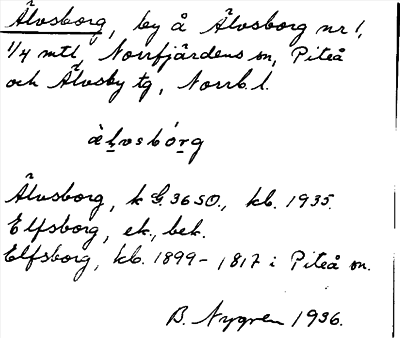 Älvsborg, by å Älvsborg nr 1,
1/4 mtl, Norrfjärdens sn, Piteå
och Älvsby tg, Norrb. l.
älvsbórg
Älvsborg, k G. 36 SO., kb. 1935.
Elfsborg, ek., bek.
Elfsborg, kb. 1899-1817 i Piteå sn.
B. Nygren 1936.